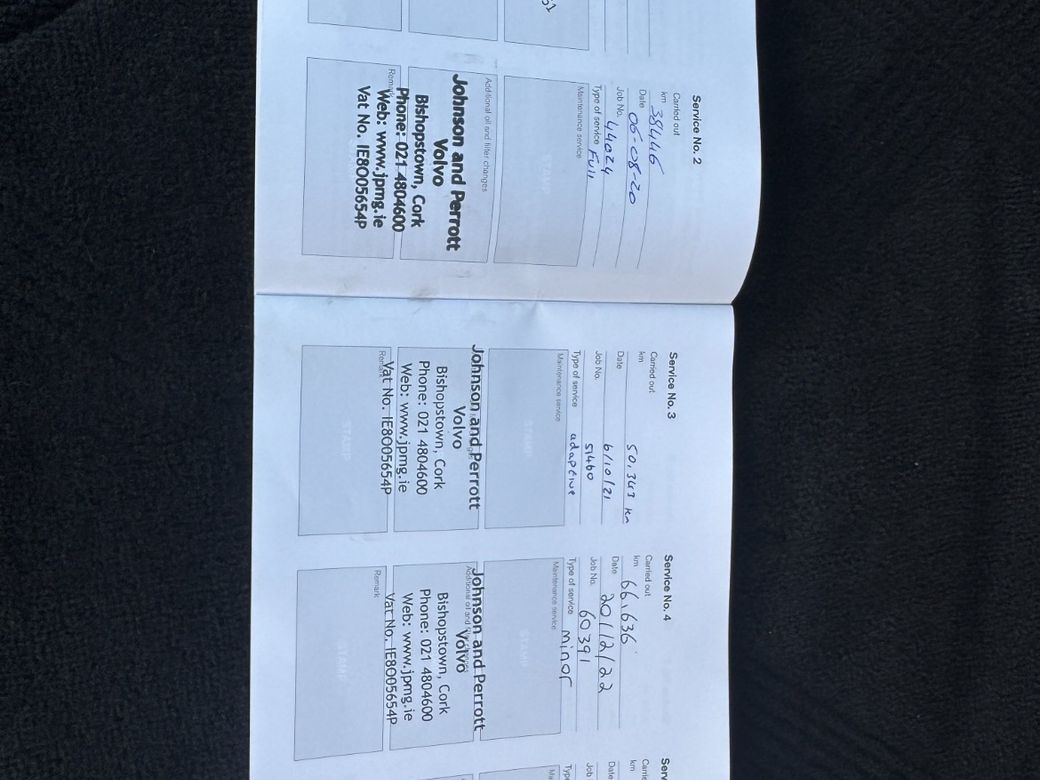 Service No. 2
Carried out
km 38446
Date 06-08-20
Job No. 44024
Type of service Full
Maintenance service
STAMP
Additional oil and filter changes
Johnson and Perrott
Volvo
Bishopstown, Cork
Phone: 021 4804600
Remark
Web: www.jpmg.ie
Vat No. IE8O05654P
Service No. 3
Carried out
km 50,343 km
Date 6/10/21
Job No. 51460
Type of service adaptive
Maintenance service
STAMP
Johnson and Perrott
Volvo
Bishopstown, Cork
Phone: 021 4804600
Web: www.jpmg.ie
Remark
Vat No. IE8O05654P
STAMP
Service No. 4
Carried out
km 66,636
Date 20/12/22
Job No. 60391
Type of service minor
Maintenance service
STAMP
Additional oil and filter changes
Johnson and Perrott
Volvo
Bishopstown, Cork
Phone: 021 4804600
Web: www.jpmg.ie
Remark
Vat No. IE8O05654P
STAMP